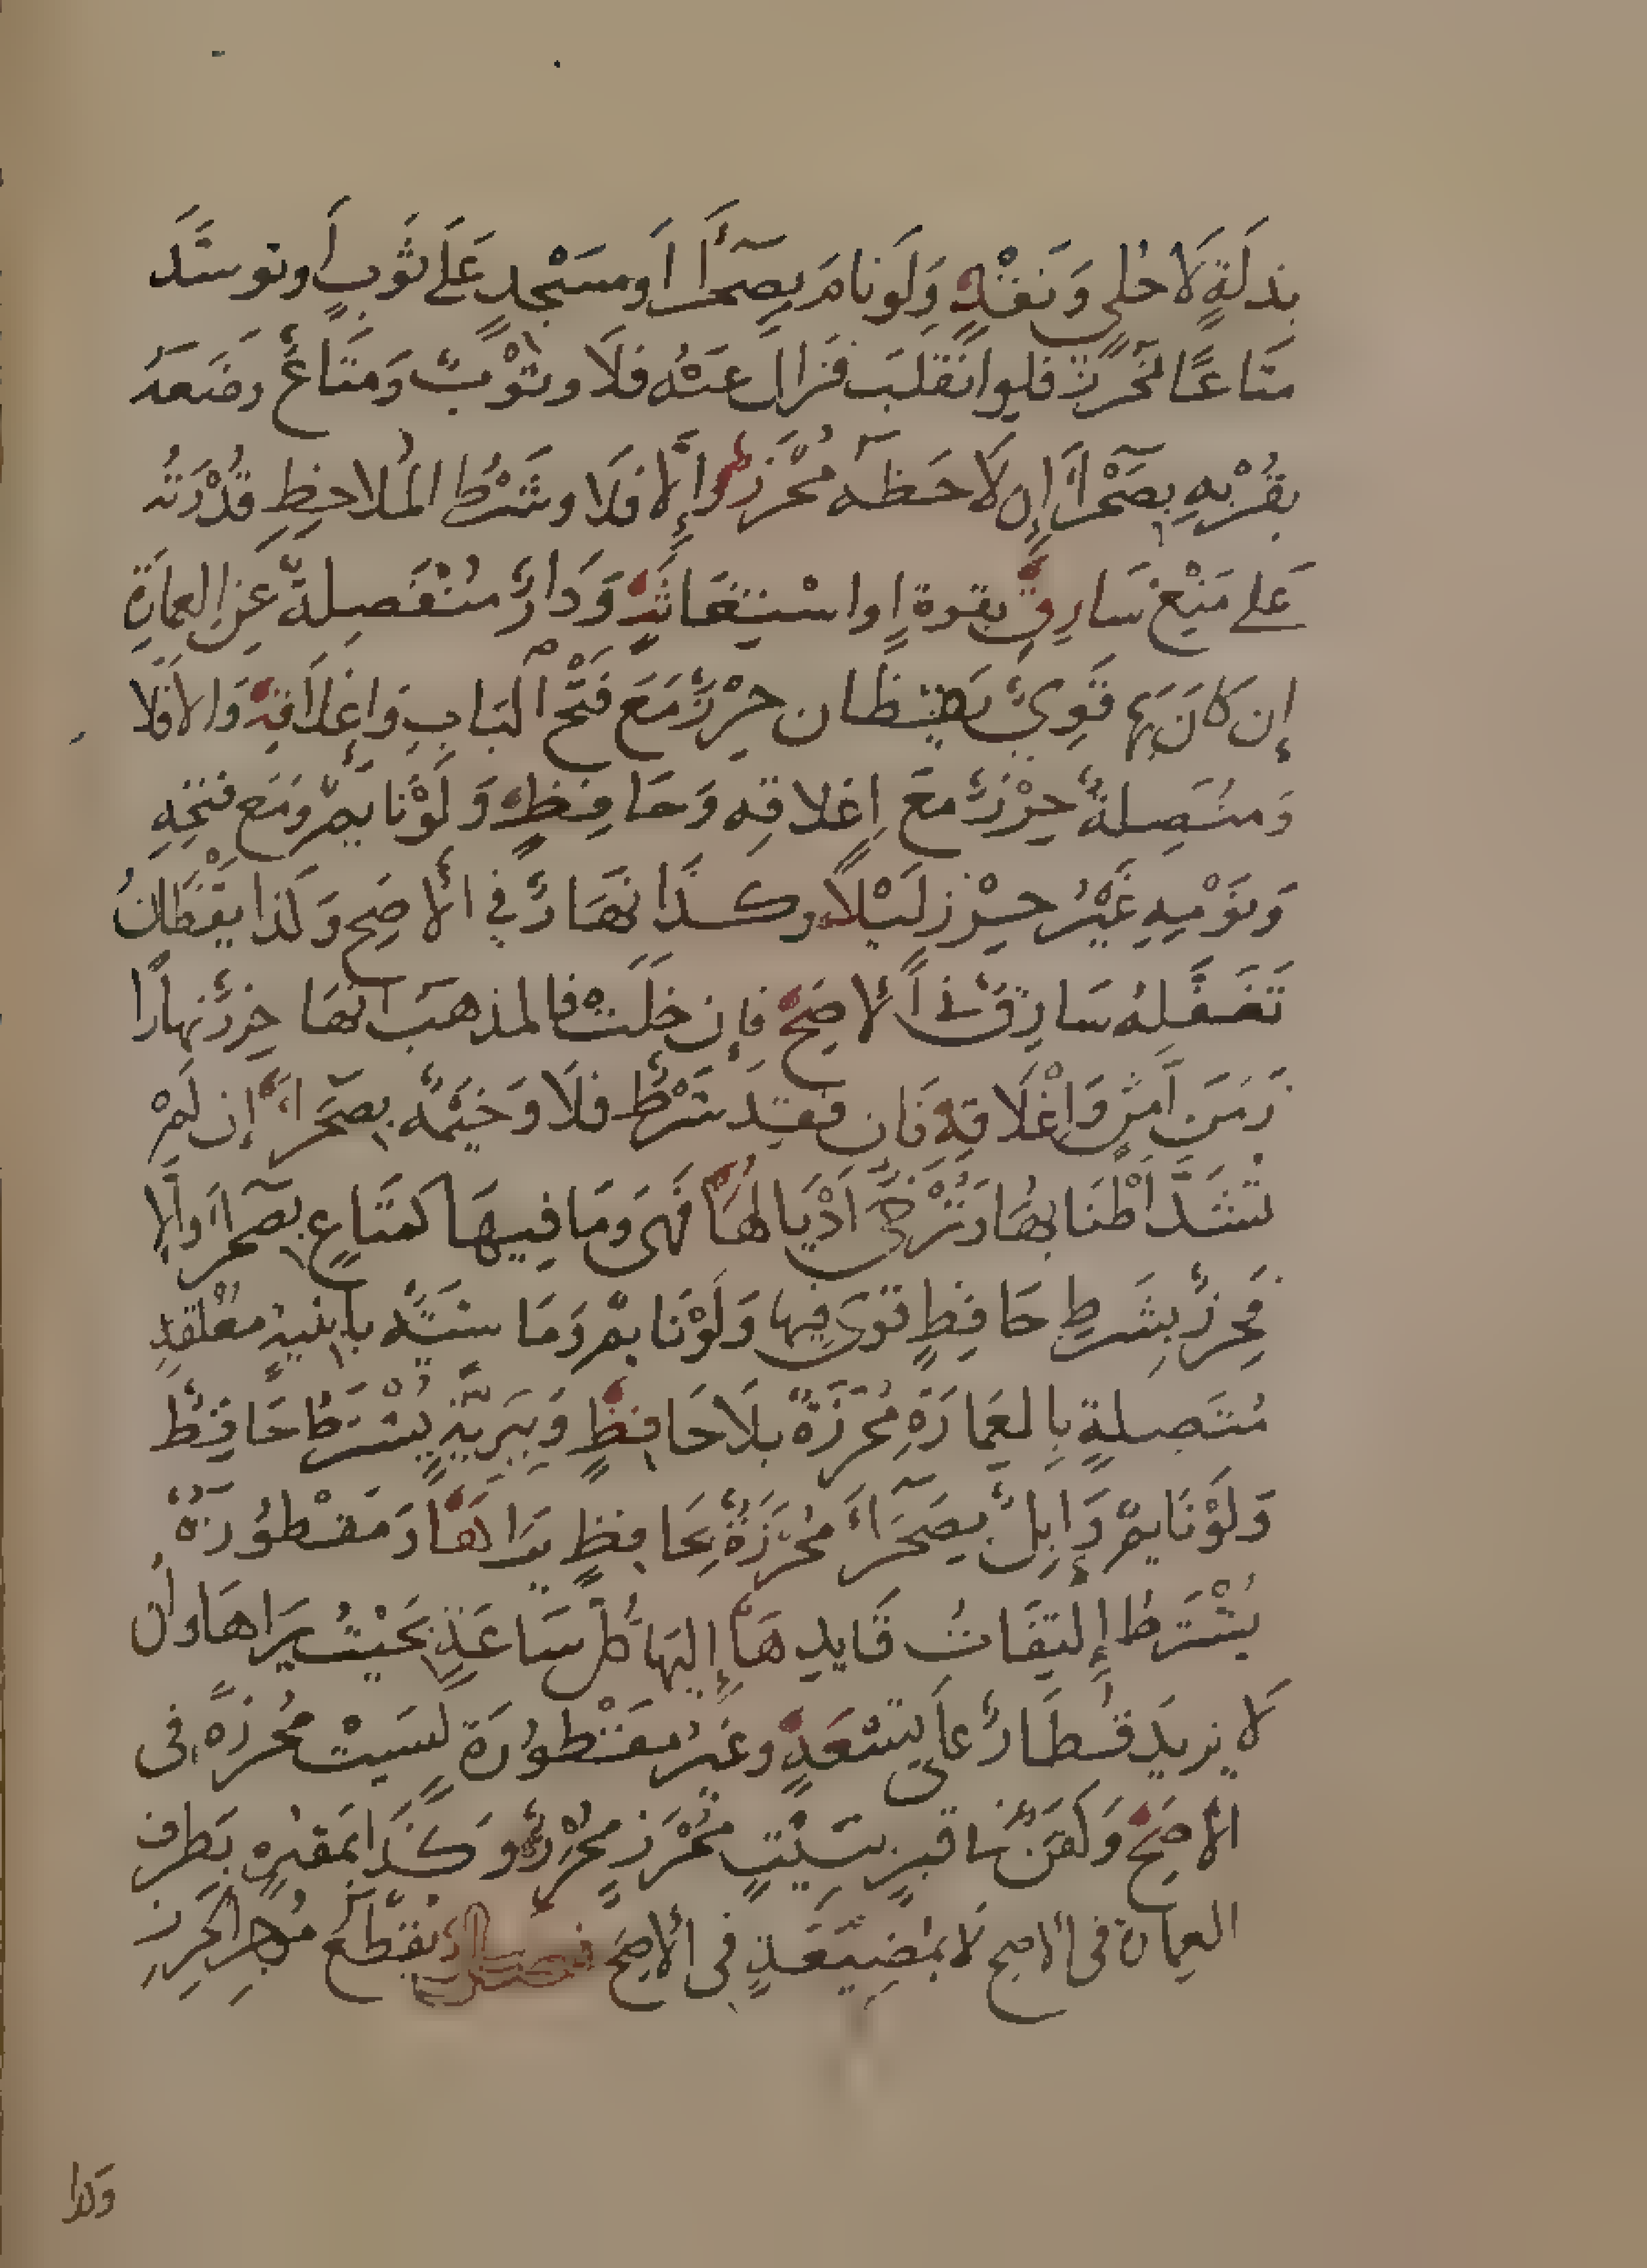 بِذلَةٍ لَا حُلِي وَنَقْدٍ وَلَو نامَ بِصَحْرَآءَ او مسَجْدٍ عَلَى ثَوبٍ أَو تَوسَّدَ
مَتَاعًا فمُحْرَز فلو انقَلَبَ فَزالَ عَنْهُ فَلَا وَثَوْبٌ وَمَتَاعٌ وضَعَهُ
بِقُرْبِهِ بِصَحْرَآءَ إن لَاحَظهُ مُحْرَزٌ وَإِلَّا فَلَا وشَرْطُ المُلاحِظِ قُدْرَتُهُ
عَلى مَنْعِ سَارِقٍ بِقوةٍ او اسْتِغَاثَةٍ وَدَارٌ مُنْفَصِلةٌ عَنِ العِمارَةِ
إن كانَ بَها قَوِيٌّ يَقْظان حِرْزٌ مَعَ فَتْحِ البَابِ وَإغْلاقِهِ وَالا فَلا
وَمتَّصِلةٌ حِرْزٌ معَ إغلاقِهِ وَحَافِظٍ وَلَوْ نايمٌ ومَع فتْحِهِ
وَنَوْمِهِ غَيْرُ حِرْز لَيْلًا وكَذَا نَهَارًا في الأصَح وَكذا يَقْظَانُ
تَغَفَّلهُ سَارِقٌ في الأصَحّ فإن خلَت فالمذهَبُ انَّهَا حِرْزٌ نهارًا
زَمَنَ أَمنٍ وَإغْلَاقِهِ فَان فقِدَ شَرْطٌ فَلَا وَخيْمَةٌ بِصَحْرَاءَ إن لَمْ
تُشَدَّ أطْنَابهَا وَتُرْخَى اَذْيَالهَا فَهَي وَمَا فِيهَا كَمَتَاعٍ بِصَحْرَاءَ وَالا
فَحِرزٌ بِشَرطِ حَافِظٍ قَوى فِيها وَلَوْ نَايمٌ وَمَا شيَةٌ بأبنيةٍ مُغْلَقةٍ
مُتَّصِلةٍ بِالعِمَارَةِ مُحْرَزَةٌ بلَا حَافِظٍ وَبِبَرّيَّةٍ يُشْتَرَطُ حَافِظٌ
وَلَوْ نَايمٌ وَإبِلٌ بِصَحْرَاءَ مُحْرَزَةٌ بحَافِظٍ يَرَاهَا وَمَقْطُورَةٌ
يُشْتَرَطُ إلتِفَاتُ قَايدِهَا إلَيهَا كُلَّ سَاعَةٍ بحَيْثُ يَرَاهَا وَأن
لَا يَزيدَ قِطَارٌ علَى تِسْعَةٍ وغَيْرُ مَقْطُورَةٍ لَيسَتْ مُحْرَزَةٌ فى
الأصَحِّ وَكفَنٌ فى قبرٍ ببَيْتٍ مُحْرَزٍ مُحْرَزٌ وكَذَا بمَقبرةٍ بِطَرفِ
العِمارة فى الأصح لا بمَضِيعَةٍ فى الأصَحّ فصل يُقْطَعُ مُؤجِرُ الحِرْزِ